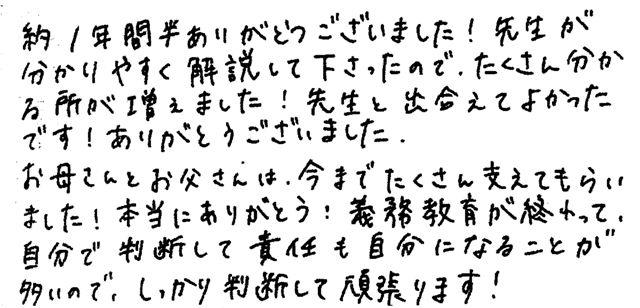 約1年間半ありがとうございました！先生が
分かりやすく解説して下さったので、たくさん分か
る所が増えました！先生と出合えてよかった
です！ありがとうございました．
お母さんとお父さんは、今までたくさん支えてもらい
ました！本当にありがとう！義務教育が終わって、
自分で判断して責任も自分になることが
多いので、しっかり判断して頑張ります！